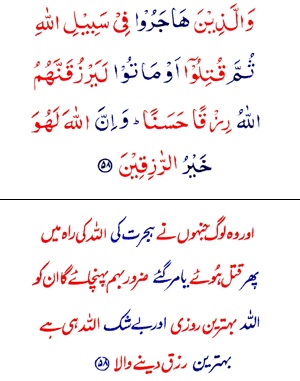 وَالَّذِیْنَ هَاجَرُوْا فِیْ سَبِیْلِ اللّٰهِ
ثُمَّ قُتِلُوْۤا اَوْ مَاتُوْا لَیَرْزُقَنَّهُمُ
اللّٰهُ رِزْقًا حَسَنًا ؕ وَ اِنَّ اللّٰهَ لَهُوَ
خَیْرُ الرّٰزِقِیْنَ ﴿۵۸﴾
اور وہ لوگ جنہوں نے ہجرت کی اللہ کی راہ میں
پھر قتل ہُوئے یا مر گئے ضرور بہم پہنچائے گا ان کو
اللہ بہترین روزی اور بے شک اللہ ہی ہے
بہترین رزق دینے والا ﴿۵۸﴾